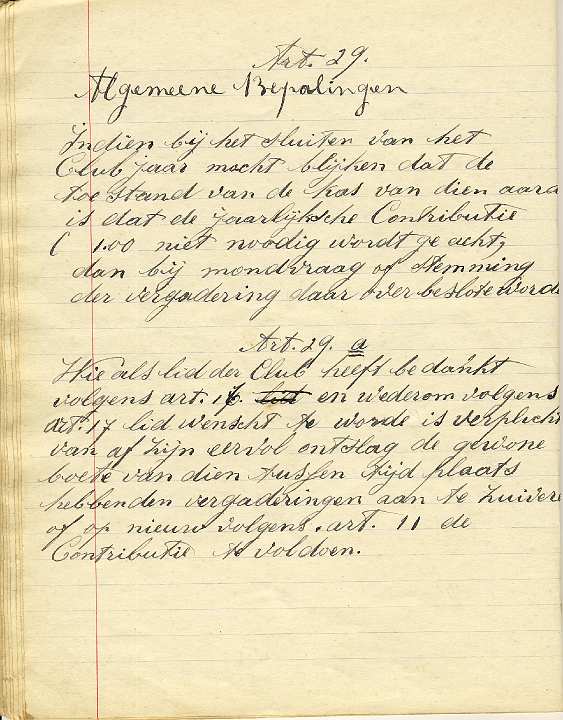 Art. 29.
Algemeene Bepalingen
Indien bij het sluiten van het
Club jaar mocht blijken dat de
toestand van de kas van dien aard
is dat de jaarlijksche Contributie
( 1.00 niet noodig wordt ge acht,
dan bij mondvraag of Stemming
der vergadering daar over beslote worde
Art. 29. a
Wie als lid der Club heeft bedankt
volgens art. 16 en wederom volgens
Art. 17 lid wenscht te worde is verplicht
van af zijn eervol ontslag de gewone
boete van dien tussen tijd plaats
hebbenden vergaderingen aan te zuivere
of op nieuw volgens. art. 11 de
Contributie te voldoen.